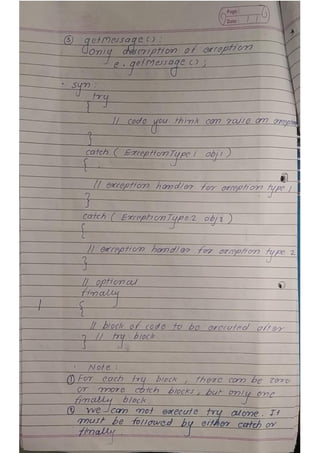 Page:
Date: / /
③ getMessage():
only description of exception
e.getMessage();
• syn:
try
{
// code you think can raise an
}
catch ( ExceptionType1 obj1)
{
// exception handler for exception type 1
}
catch ( ExceptionType2 obj2)
{
// exception handler for exception type 2
}
// optional
finally
{
// block of code to be executed after
} // try block
Note:
① For each try block, there can be zero
or more catch blocks, but only one
finally block.
② we can not execute try alone. It
must be followed by either catch or
finally